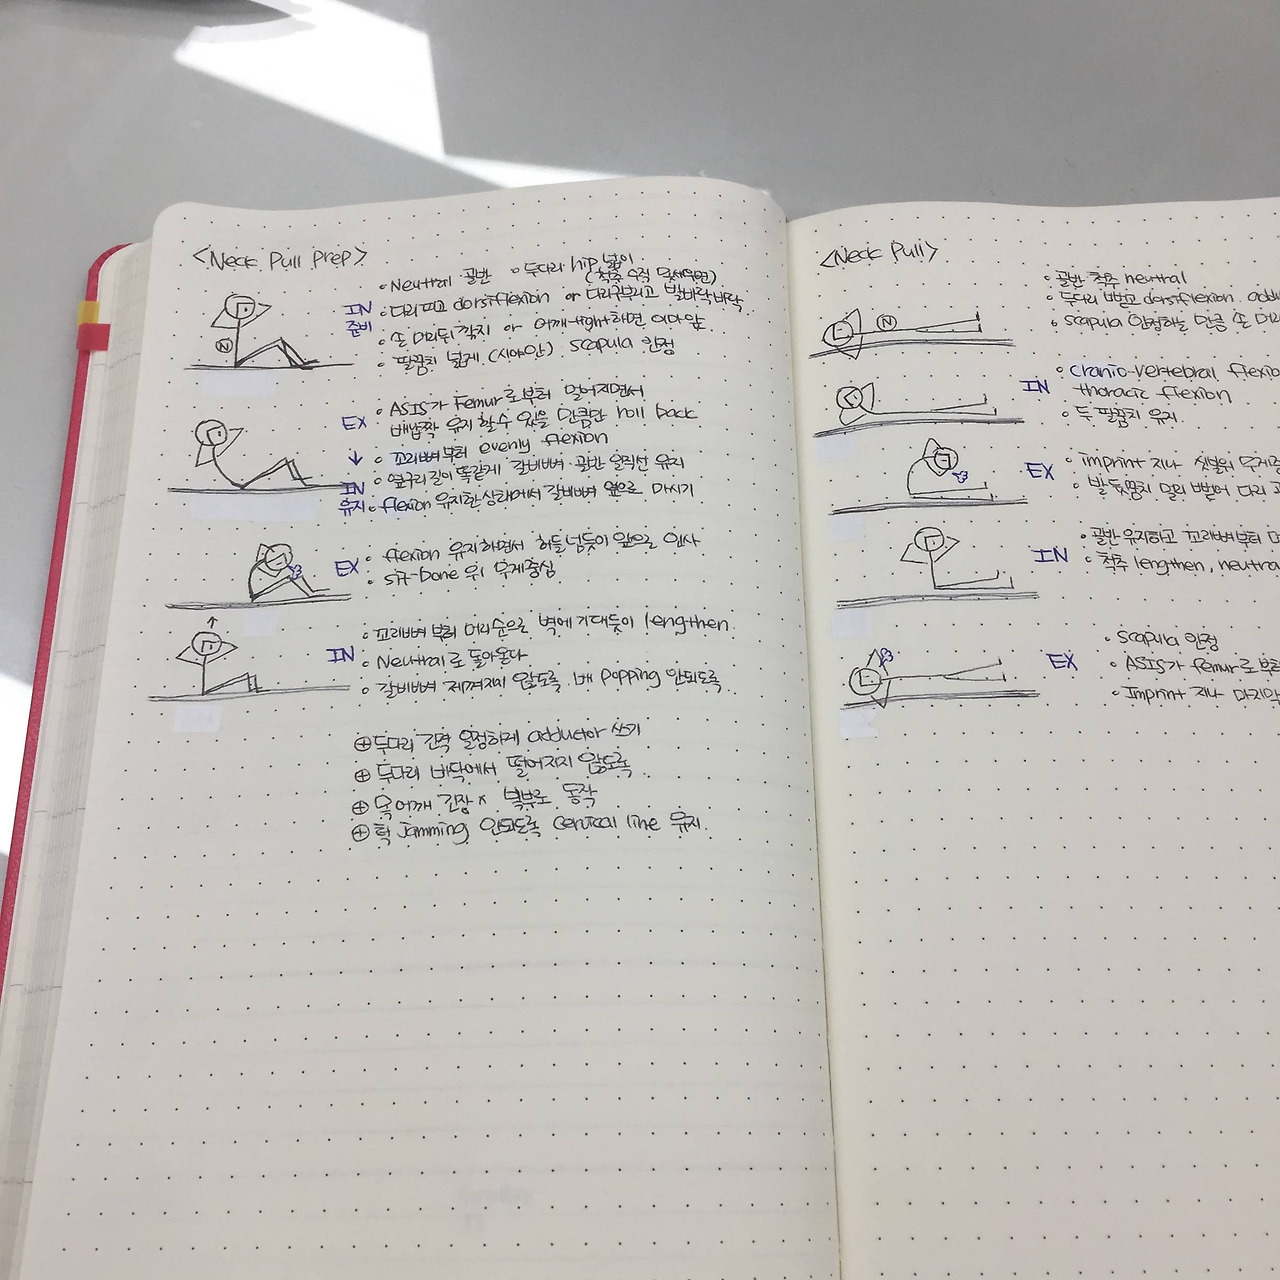 <Neck Pull prep>
• Neutral 골반 • 두다리 hip 넓이
(척추 수직 못세우면)
IN 준비
• 다리펴고 dorsiflexion or 다리구부리고 발바닥바닥
• 손 머리뒤 깍지 or 어깨 tight하면 이마앞
• 팔꿈치 넓게 (시야안) scapula 안정
N
EX
• ASIS가 Femur로부터 멀어지면서
배납작 유지 할수 있을 만큼만 roll back
↓ • 꼬리뼈부터 evenly flexion
• 옆구리 길이 똑같게 갈비뼈·골반 일직선 유지
IN 유지 • flexion 유지한 상태에서 갈비뼈 옆으로 마시기
EX • flexion 유지하면서 허들 넘듯이 앞으로 인사
• sit-bone 위 무게중심
• 꼬리뼈 부터 머리순으로 벽에 기대듯이 lengthen
IN • Neutral로 돌아온다
• 갈비뼈 제껴지지 않도록 배 popping 안되도록
⊕ 두다리 간격 일정하게 adductor 쓰기
⊕ 두다리 바닥에서 떨어지지 않도록
⊕ 목어깨 긴장 x 복부로 동작
⊕ 턱 Jamming 안되도록 cervical line 유지
<Neck Pull>
• 골반 척추 neutral
• 두다리 뻗고 dorsiflexion
• scapula 안정하는 만큼 손
N
IN • cranio-vertebral
thoracic flexion
• 두 팔꿈치 유지
EX • imprint 지나
• 발 뒤꿈치 멀리 뻗어 다리
IN • 골반 유지하고 꼬리뼈부터
• 척추 lengthen, neutral
EX • scapula 안정
• ASIS가 femur로부터
• Imprint 지나 마지막